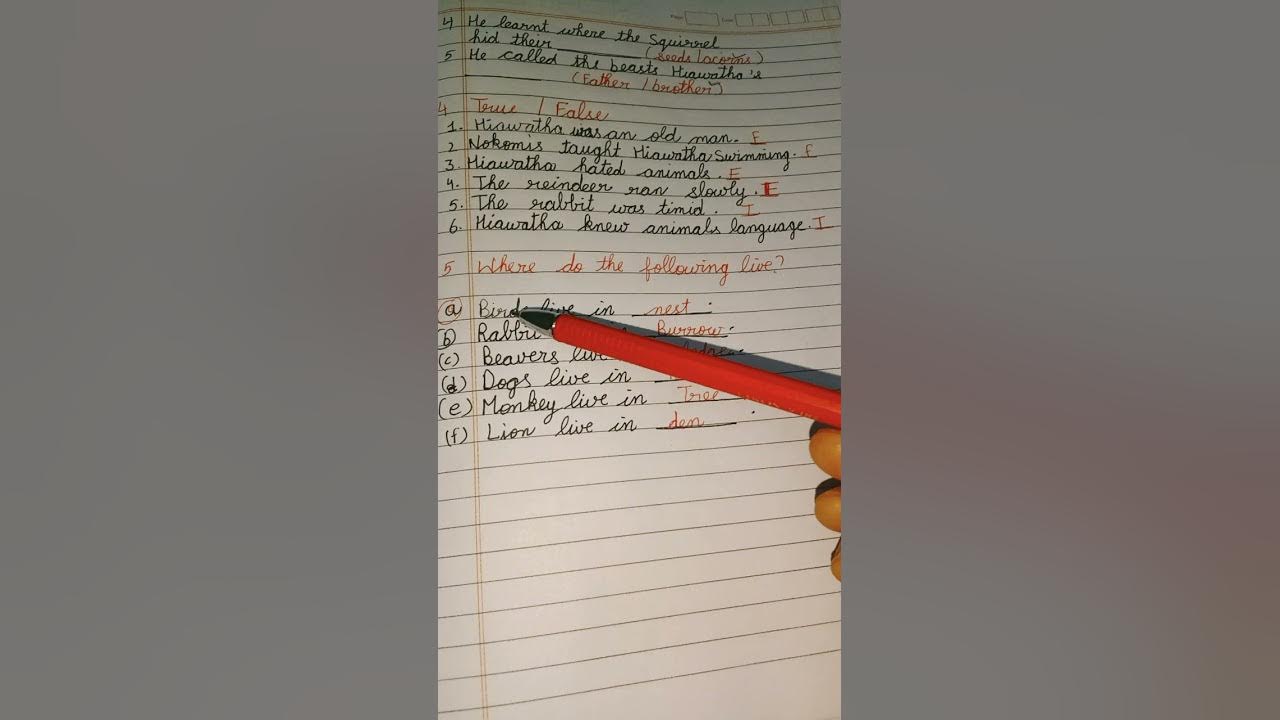 4 He learnt where the Squirrel
hid their ________ (seeds / acorns)
5 He called the beasts Hiawatha's
________ (Father / brother)
4 True / False
1. Hiawatha was an old man. F
2 Nokomis taught Hiawatha Swimming. F
3. Hiawatha hated animals. F
4. The reindeer ran slowly. F
5. The rabbit was timid. T
6. Hiawatha knew animals language. T
5 Where do the following live?
(a) Birds live in nest.
(b) Burrow.
(c) Beavers live
(d) Dogs live in
(e) Monkey live in Tree
(f) Lion live in den.